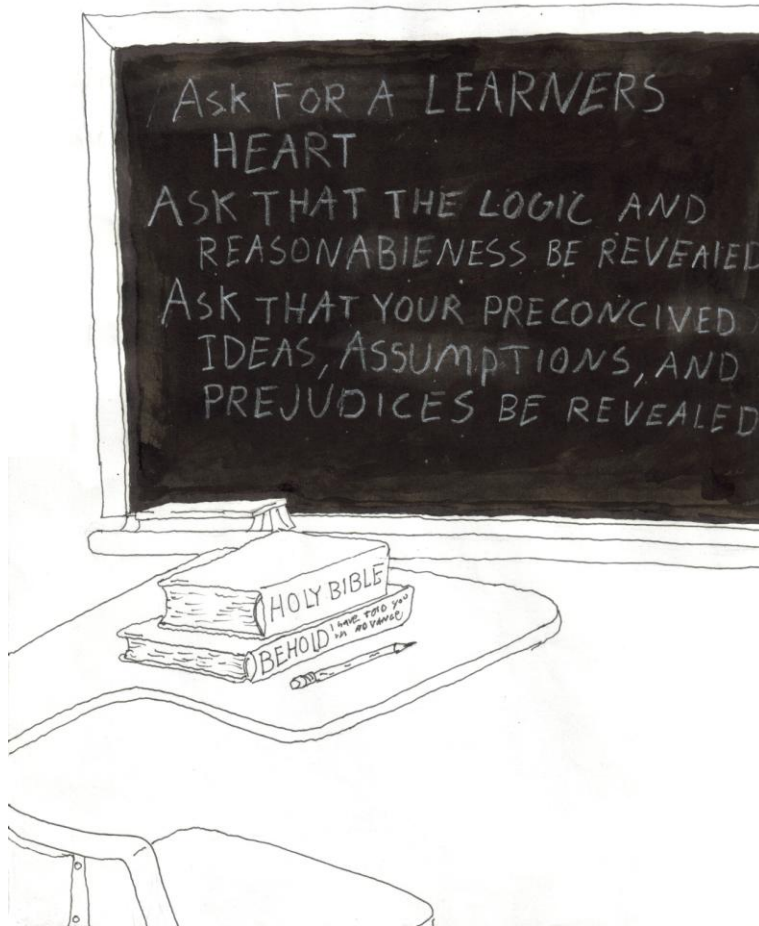 Ask FOR A LEARNERS
HEART
ASK THAT THE LOGIC AND
REASONABlENESS BE REVEAlED
ASK THAT YOUR PRECONCIVED
IDEAS, ASSUMpTIONS, AND
PREJUDICES BE REVEALED
HOLY BIBLE
BEHOLD I HAVE TOlD YOU
IN ADVANCE